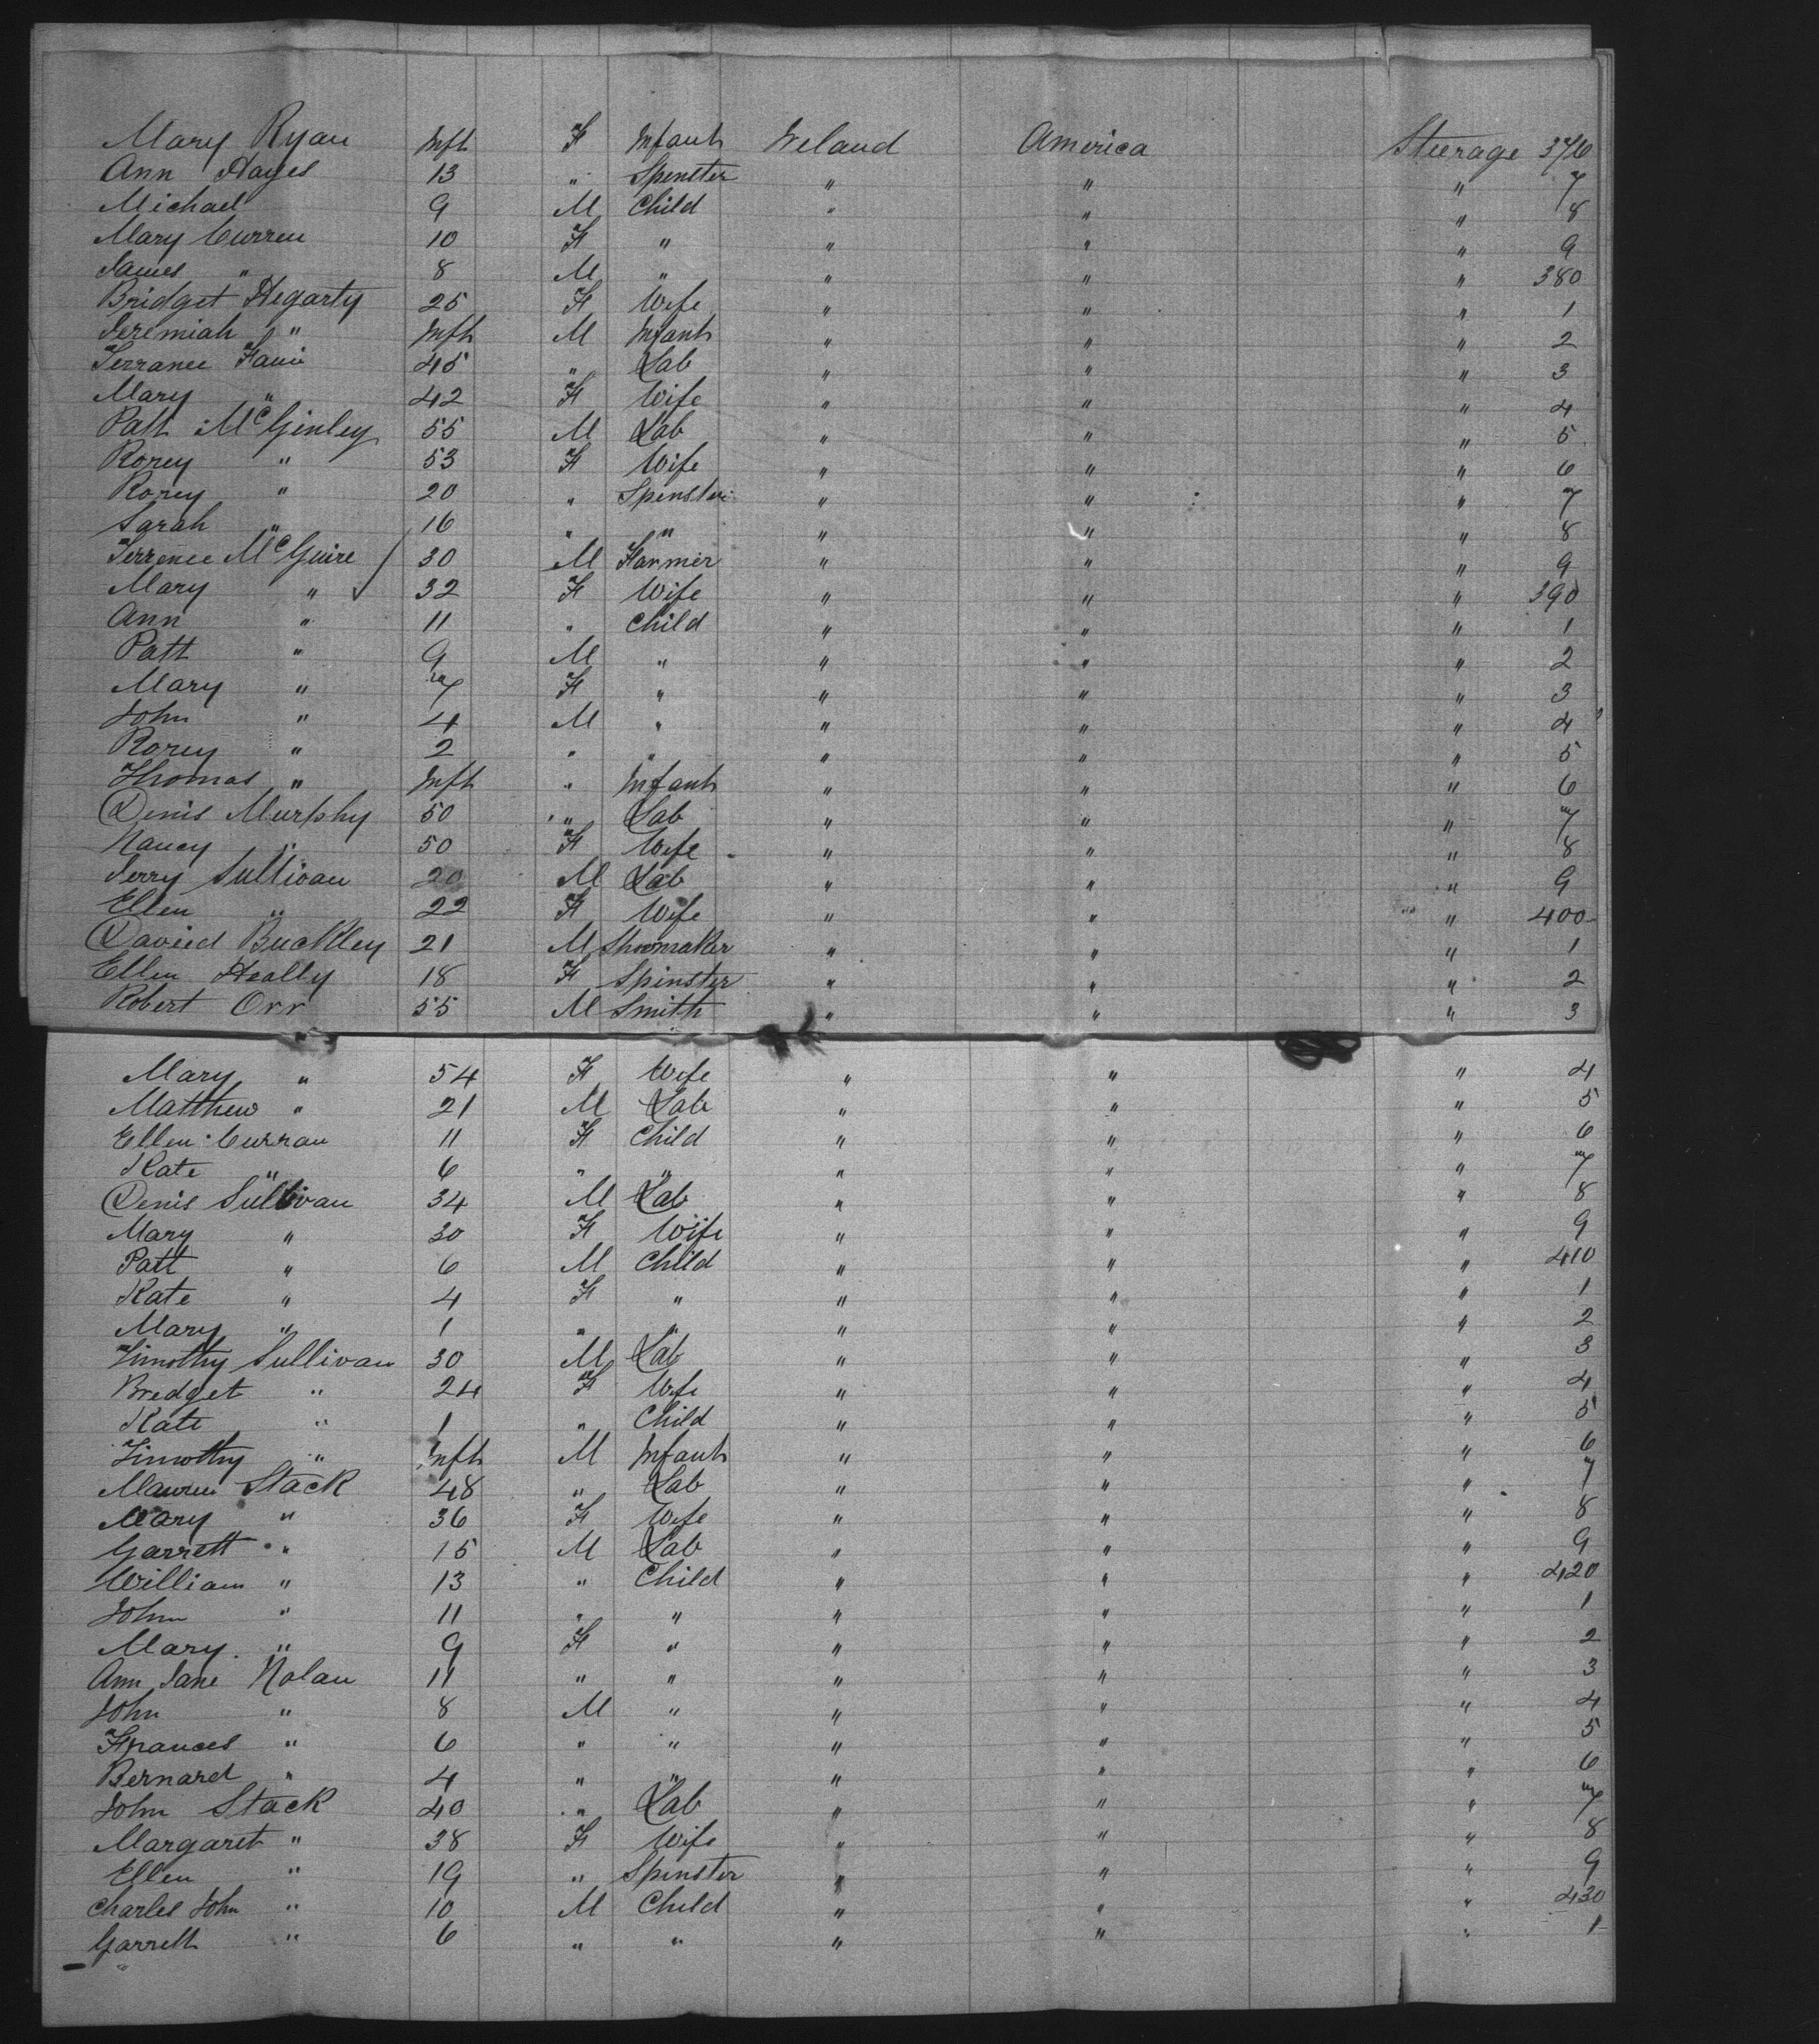 Mary Ryan Inft F Infant Ireland America Steerage 376
Ann Hayes 13 " Spenster " " " 7
Michael 9 M Child " " " 8
Mary Curren 10 F " " " " 9
James " 8 M " " " " 380
Bridget Hegarty 25 F Wife " " " 1
Jeremiah " Inft M Infant " " " 2
Terrance 45 " Lab " " " 3
Mary " 42 F Wife " " " 4
Patt McGinley 55 M Lab " " " 5
Rorey " 53 F Wife " " " 6
Rorey " 20 " Spenster " " " 7
Sarah " 16 " " " " " 8
Terrence McGuire 30 M Farmer " " " 9
Mary " 32 F Wife " " " 390
Ann " 11 " Child " " " 1
Patt " 9 M " " " " 2
Mary " 7 F " " " " 3
John " 4 M " " " " 4
Rorey " 2 " " " " " 5
Thomas " Inft " Infant " " " 6
Denis Murphy 50 " Lab " " " 7
Nancy " 50 F Wife " " " 8
Jerry Sullivan 20 M Lab " " " 9
Ellen " 22 F Wife " " " 400
Davied Buckley 21 M Shoomaker " " " 1
Ellen Heally 18 F Spinster " " " 2
Robert Orr 55 M Smith " " " 3
Mary " 54 F Wife " " " 4
Matthew " 21 M Lab " " " 5
Ellen Curran 11 F Child " " " 6
Kate " 6 " " " " " 7
Denis Sullivan 34 M Lab " " " 8
Mary " 30 F Wife " " " 9
Patt " 6 M Child " " " 410
Kate " 4 F " " " " 1
Mary " 1 " " " " " 2
Timothy Sullivan 30 M Lab " " " 3
Bredget " 24 F Wife " " " 4
Kate " 1 " Child " " " 5
Timothy " Inft M Infant " " " 6
Stack 48 " Lab " " " 7
Mary " 36 F Wife " " " 8
Garrett " 15 M Lab " " " 9
William " 13 " Child " " " 420
John " 11 " " " " " 1
Mary " 9 F " " " " 2
Ann Jane Nolan 11 " " " " " 3
John " 8 M " " " " 4
Frances " 6 " " " " " 5
Bernard " 4 " " " " " 6
John Stack 40 " Lab " " " 7
Margaret " 38 F Wife " " " 8
Ellen " 19 " Spinster " " " 9
Charles John " 10 M Child " " " 430
Garrett " 6 " " " " " 1